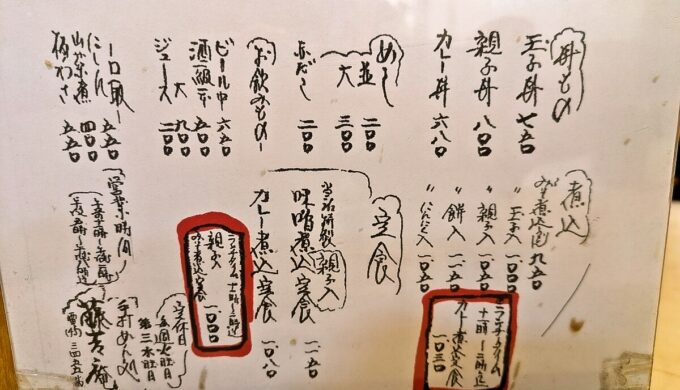 丼もの
玉子丼 七五〇
親子丼 八〇〇
カレー丼 六八〇
めし
並 二〇〇
大 三〇〇
赤だし 二〇〇
お飲みもの
ビール中 六五〇
酒一級 小 五〇〇
大 九〇〇
ジュース 二〇〇
一口取り 五五〇
にしん
山菜煮 四〇〇
板わさ 五五〇
煮込
みそ煮込うどん 九五〇
〃 玉子入 一〇〇〇
〃 親子入
〃 餅入 一一五〇
〃 にんにく入 一〇五〇
定食
当店特製
親子入
味噌煮込定食 一一五〇
カレー煮込定食 一〇八〇
ランチタイム 十一時〜二時迄
カレー煮込定食
一〇三〇
ランチタイム 十一時〜二時迄
親子入
みそ煮込定食
一一〇〇
営業時間
定休日
毎週火曜日
第三水曜日
手打めん処
藤吉庵